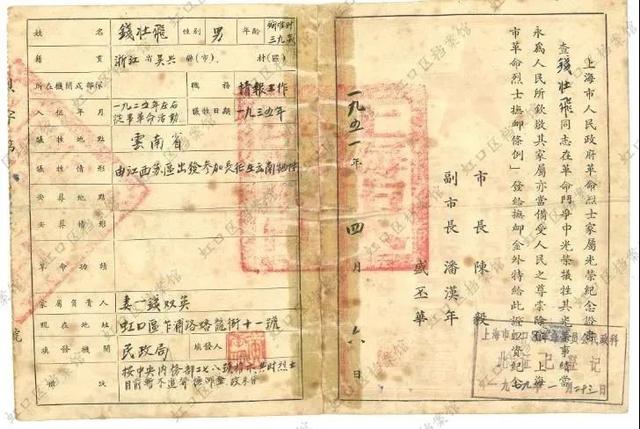 上海市人民政府革命烈士家屬光榮紀念證書
查錢壯飛同志在革命鬥爭中光榮犧牲其光榮事蹟當
永為人民所欽敬其家屬亦當備受人民之尊崇除依上海
市革命烈士撫卹條例」發給撫卹金外特給此證以資紀念
市長 陳毅
副市長 潘漢年
盛丕華
一九五一年 四月 六日
姓名 錢壯飛 性別 男 年齡 犧牲時三九歲
籍貫 浙江省吳興縣(市) 村(區)
所在機關或部隊 職務 情報工作
入伍年月 一九二五年左右從事革命活動 犧牲日期 一九三五年
犧牲地點 雲南省
犧牲情形 由江西苏區出發参加長征至云南犧牲
安葬地點
安葬情形
革命功績
家屬負責人 妻—錢双英
現在地址 虹口區乍浦路 街十一號
填發機關 民政局 填發人
按中央内務部 烈士
目前暫不
上海市虹口區 民政科
登記
一九 年一月二十三日
虹口区档案馆